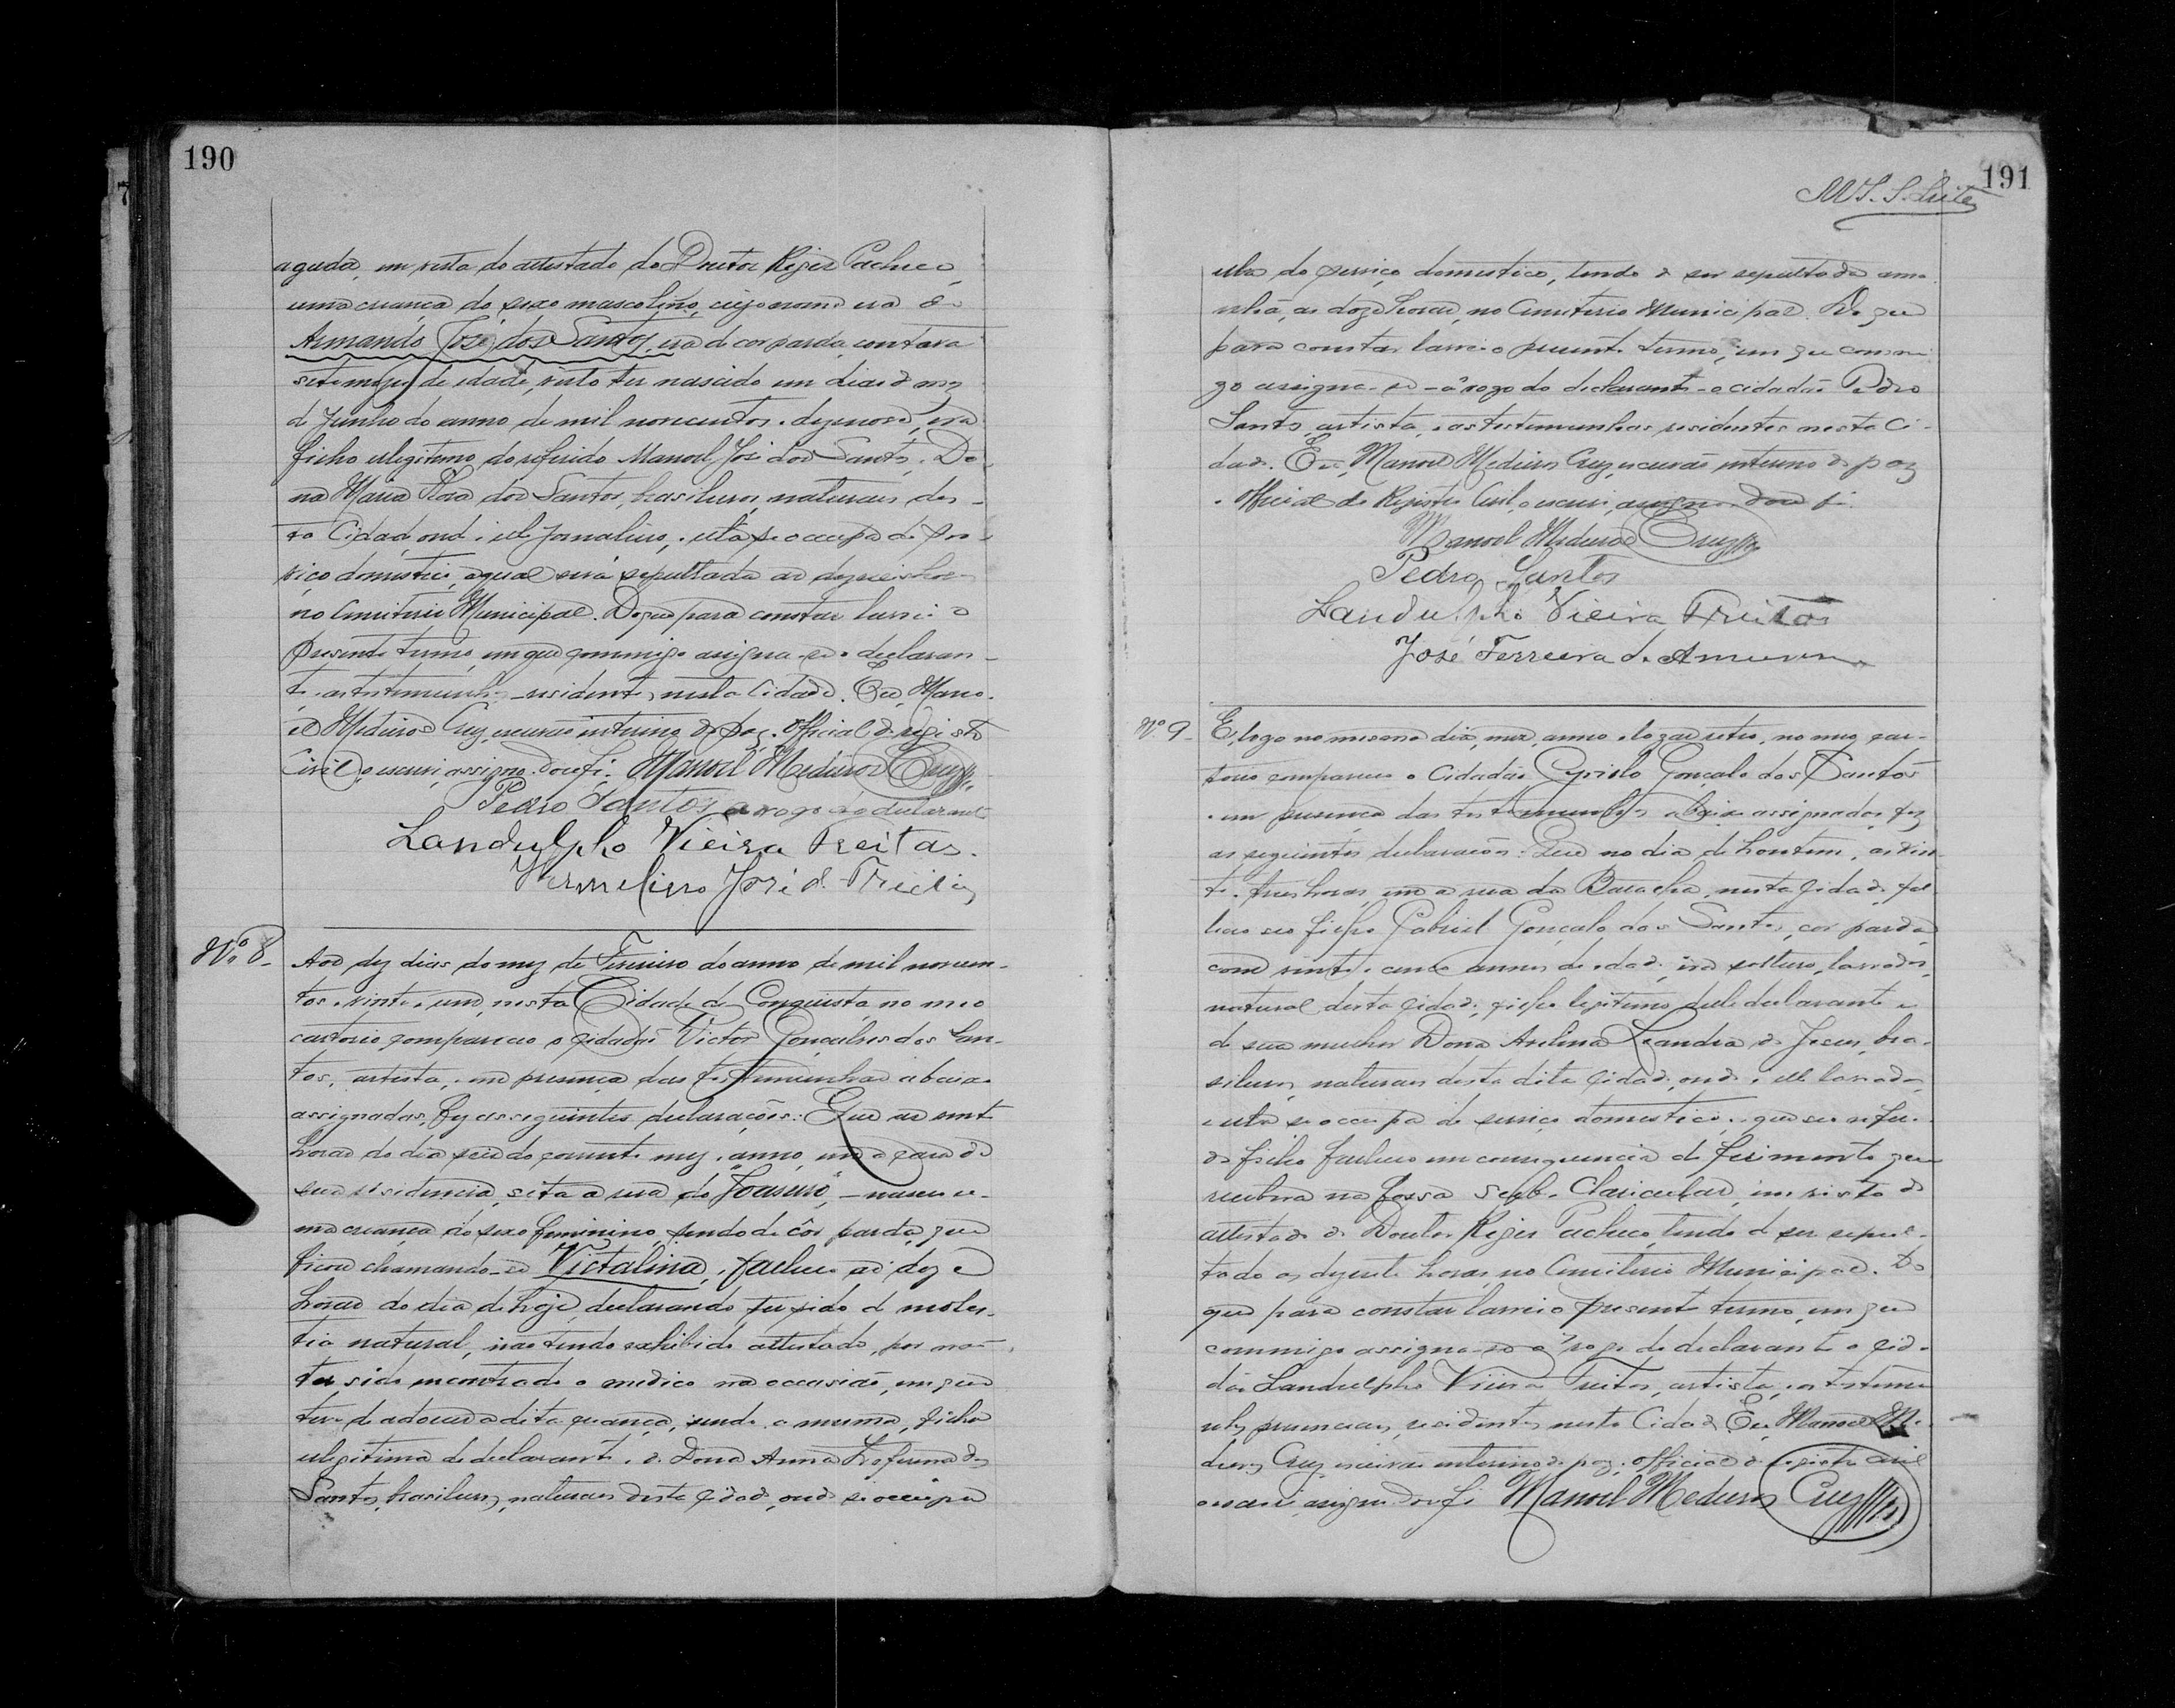 190
aguda, em vista do attestado do Doutor Regis Pacheco,
uma creança do sexo mascolino, cujo nome era o de
Armando José dos Santos, era de cor parda, contava
sete mezes de edade, visto ter nascido em dias do mez
de Junho do anno de mil novecentos e dezenove, era
filho illegitimo do referido Manoel José dos Santos e Do-
na Maria Rosa dos Santos, brasileiros, naturaes des-
ta Cidade, onde é elle jornaleiro, e ella se occupa de ser-
viço domestico, a qual será sepultada as dezeseis horas
no Cimiterio Municipal. Do que para constar lavrei o
presente termo, em que commigo assigna-se o declaran-
te e as testemunhas residentes nesta Cidade. Eu, Mano-
el Medeiros Cruz, escrivão interino de paz e Official do registo
Civil, o escrevi, assigno. Dou fé. Manoel Medeiros Cruz
Pedro Santos a rogo do declarante
Landulpho Vieira Freitas.
José de
Nº 8.
Aos dez dias do mez de Fevereiro do anno de mil novecen-
tos e vinte e um, nesta Cidade de Conquista, no meo
cartorio compareceo o cidadão Victor Gonçalves dos San-
tos, artista, e em presença das testemunhas abaixo
assignadas, fez as seguintes declarações: Que as vinte
horas do dia seis do corrente mez e anno, em a casa de
sua residencia, sita a rua do "Joaseiro", - nasceu u-
ma creança do sexo feminino, sendo de côr parda, que
ficou chamando-se Victalina, e falleceo as doze
horas do dia de hoje, declarando ter sido de moles-
tia natural, não tendo exhibido attestado, por não
ter sido encontrado o medico na occasião, em que
teve de adoecer a dita creança, sendo a mesma, filha
illegitima do declarante e de Dona Anna Zeferina dos
Santos, brasileiros, naturaes desta cidade, onde se occupa
191
M S. S. Leite
elle do serviço domestico, tendo de ser sepultada ama-
nhã, as doze horas, no Cimiterio Municipal. Do que
para constar lavrei o presente termo, em que commi-
go assigna-se - a rogo do declarante - o cidadão Pedro
Santos, artista, e as testemunhas residentes nesta Ci-
dade. Eu, Manoel Medeiros Cruz, escrivão interino de paz
e Official do Registro Civil, o escrevi, assigno e dou fé.
Manoel Medeiros Cruz
Pedro Santos
Landulpho Vieira Freitas
José Ferreira de
Nº 9.
E, logo no mesmo dia, mez, anno e logar retro, no meu car-
torio compareceo o Cidadão Cyrillo Gonçalo dos Santos
e em presença das testemunhas abaixo assignadas fez
as seguintes declarações: Que no dia de hontem, as vin-
te e tres horas, em a rua da Baracha, nesta cidade, fal-
leceo seo filho Gabriel Gonçalo dos Santos, cor parda,
com vinte e cinco annos de edade, era solteiro, lavrador,
natural desta cidade, filho legitimo delle declarante e
de sua mulher Dona Avelina Leandra de Jesus, bra-
sileiros, naturaes desta dita cidade, onde é elle lavrador,
e ella se occupa de serviço domestico, e que seu referi-
do filho falleceo em consequencia de ferimento que
recebera na fossa Sub-Clavicular, em vista do
attestado do Doutor Regis Pacheco, tendo de ser sepul-
tado as dezesete horas, no Cimiterio Municipal. Do
que para constar lavrei o presente termo, em que
commigo assigna-se a rogo do declarante o cida-
dão Landulpho Vieira Freitas, artista, e as testemu-
nhas presenciaes, residentes nesta Cidade. Eu, Manoel Me-
deiros Cruz, escrivão interino de paz e official do registro civil
o escrevi, assigno e dou fé Manoel Medeiros Cruz